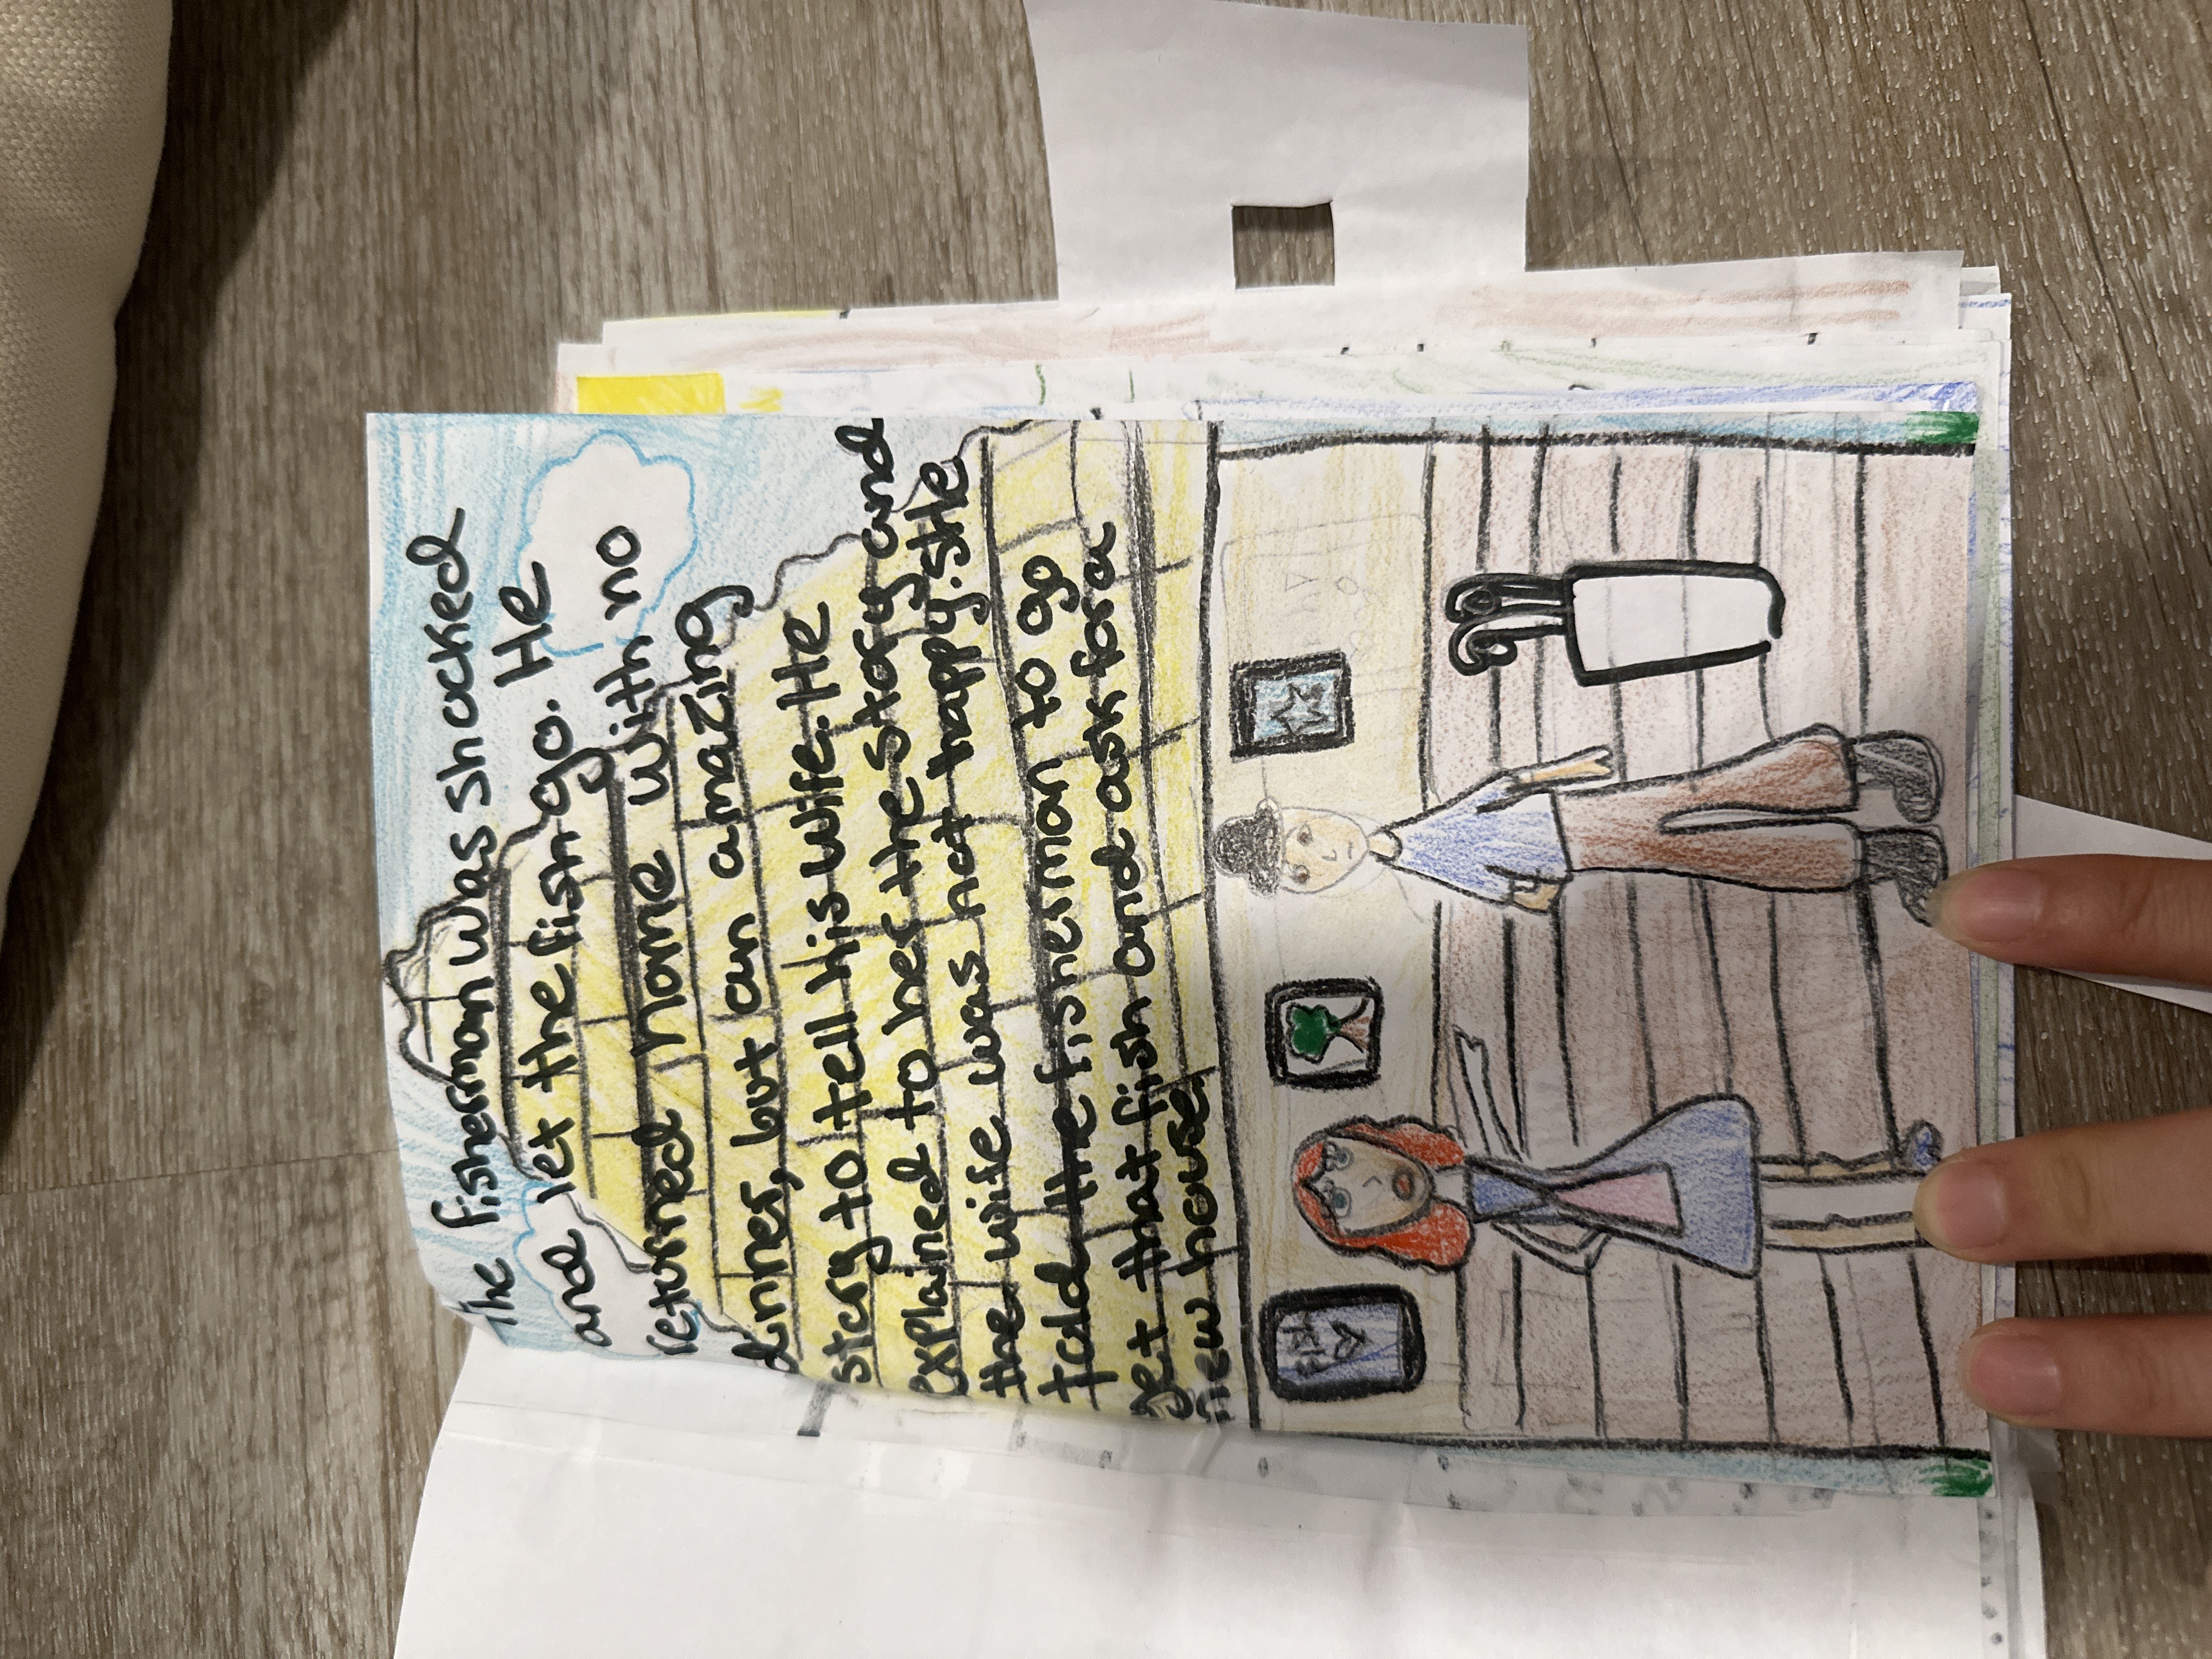 The fisherman was shocked
and let the fish go. He
returned home with no
dinner, but an amazing
story to tell his wife. He
explained to her the story and
the wife was not happy. SHe
told the fisherman to go
get that fish and ask for a
new house.
FISH